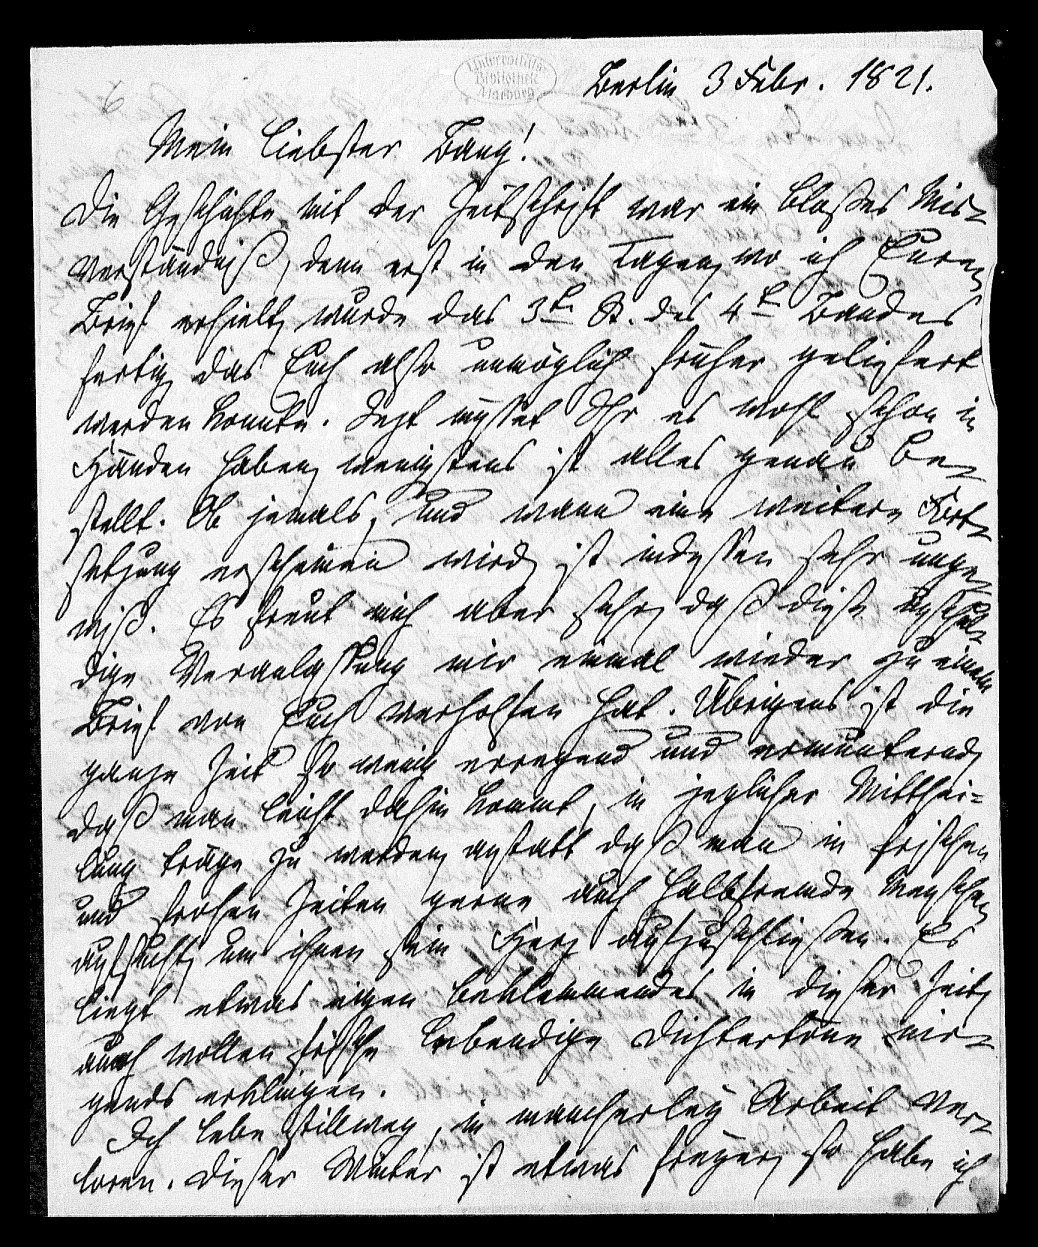 Universitäts
Bibliothek
Marburg
Berlin 3 Febr. 1821.
Mein liebster Bang!
Die Geschichte mit der Zeitschrift war ein bloßes Mis-
verständniß, denn erst in den Tagen, wo ich Euren
Brief erhielt, wurde das 3te St. des 4ten Bandes
fertig, das Euch also unmöglich früher geliefert
werden konnte. Jezt müsset Ihr es wohl schon in
Händen haben, wenigstens ist alles genau be-
stellt. Ob jemals, und wann eine weitere Fort-
setzung erscheinen wird, ist indessen sehr unge-
wiß. Es freut mich aber sehr, daß diese unschul-
dige Veranlassung mir einmal wieder zu einem
Brief von Euch verholfen hat. Übrigens ist die
ganze Zeit so wenig erregend und ermunternd,
daß man leicht dahin kommt, in jeglicher Mitthei-
lung träge zu werden, anstatt daß man in frischen
und frohen Zeiten gerne auch halbfremde Menschen
aufsucht, um ihnen sein Herz aufzuschließen. Es
liegt etwas eigen beklemmendes in dieser Zeit,
auch wollen frische lebendige Dichtertöne nir-
gends erklingen.
Ich lebe stillweg, in mancherley Arbeit ver-
loren. Dieser Winter ist etwas strenger, so habe ich